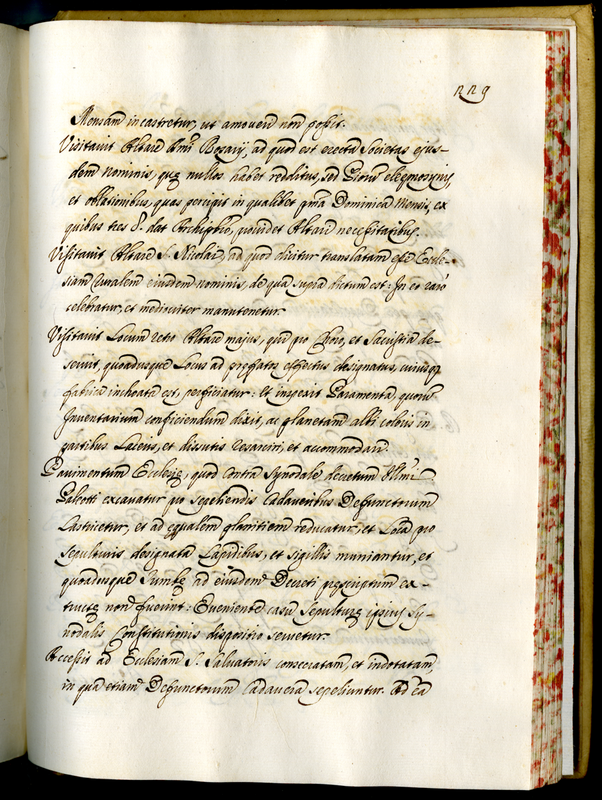 229
Mensam incastretur, ut amoveri non possit.
Visitavit Altare Smi Rosarij, ad quod est erecta Societas ejus-
dem nominis, quę nullos habet redditus, sed Piorum eleemosynis,
et oblationibus, quas percipit in qualibet pma Dominica Mensis, ex
quibus tres dat Archipbro, providet Altare necessitatibus.
Visitavit Altare S. Nicolai, ad quod dicitur translatam esse Eccle-
siam ruralem eiusdem nominis, de qua supra dictum est: In eo raro
celebratur, et mediocriter manutenetur.
Visitavit Locum retro Altare majus, qui pro Choro, et Sacristia de-
servit, quoadusque Locus ad prefatos effectus designatus, cuius
fabrica inchoata est, perficiatur: Et inspexit Paramenta, quorum
Inventarium conficiendum dixit, ac planetam albi coloris in
partibus laceris, et dissutis resarciri, et accommodari.
Pavimentum Ecclesię, quod contra Synodale decretum Illmi
Paleotti excavatur pro sepeliendis Cadaveribus Defunctorum
Lastricetur, et ad ęqualem planitiem reducatur, et Loca pro
Sepulturis designata Lapidibus, et sigillis muniantur, et
quoadusque Tumbę ad eiusdem Decreti pręscriptum ex-
tructę non fuerint: Eveniente casu Sepulturę ipsius Sy-
nodalis Constitutionis dispositio servetur.
Accessit ad Ecclesiam S. Salvatoris consecratam, et indotatam,
in qua etiam Defunctorum Cadavera sepeliuntur. Ad ea